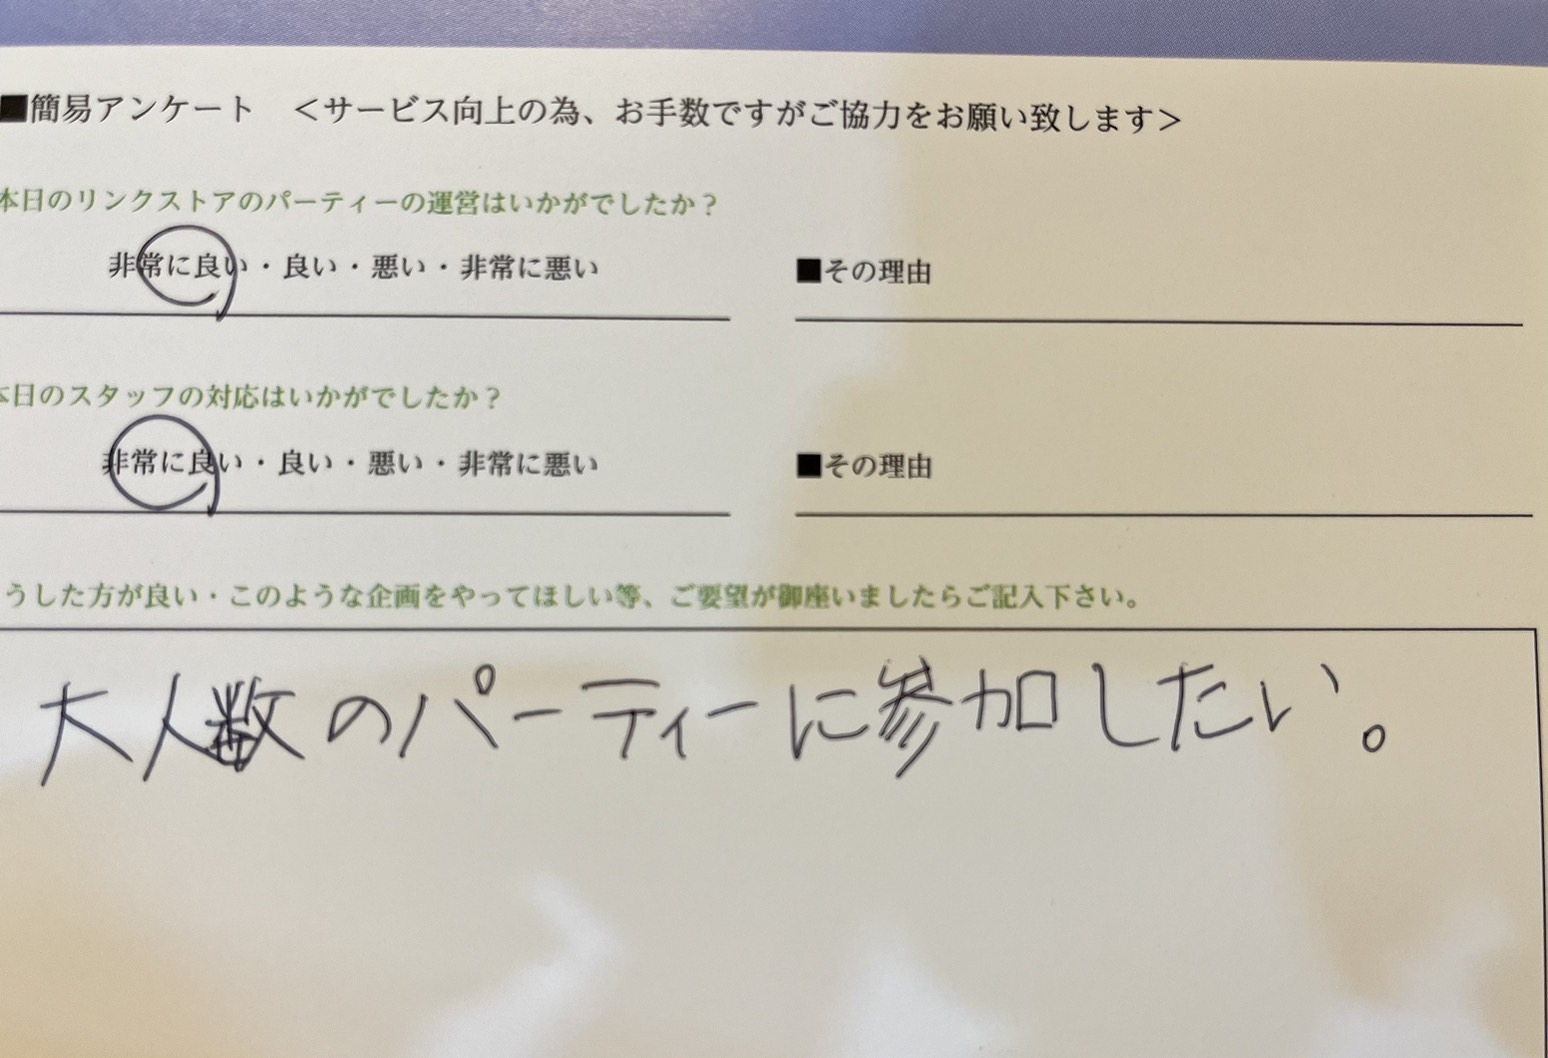 ■簡易アンケート <サービス向上の為、お手数ですがご協力をお願い致します>
本日のリンクストアのパーティーの運営はいかがでしたか?
非常に良い・良い・悪い・非常に悪い ■その理由
本日のスタッフの対応はいかがでしたか?
非常に良い・良い・悪い・非常に悪い ■その理由
うした方が良い・このような企画をやってほしい等、ご要望が御座いましたらご記入下さい。
大人数のパーティーに参加したい。